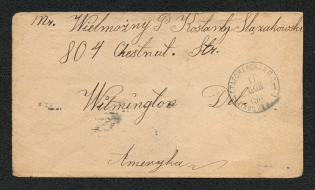 Mr. Wielmożny P Kostanty Slazakowski
804 Chestnut. Str.
Wilmington Del
Ameryka